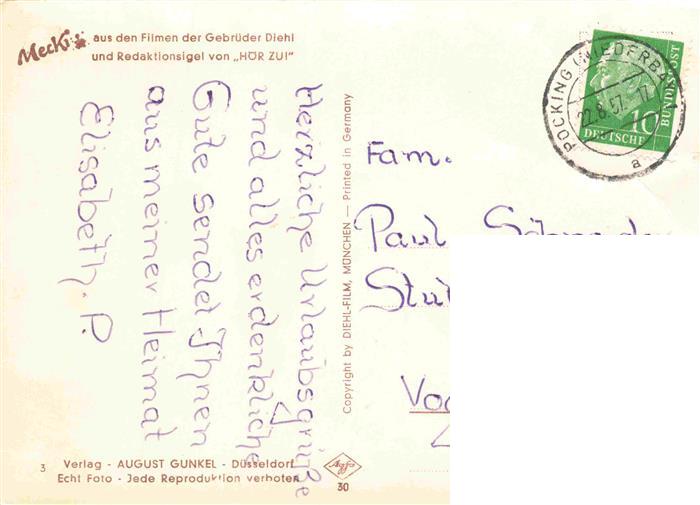 Mecki aus den Filmen der Gebrüder Diehl
und Redaktionsigel von „HÖR ZU!"
Herzliche Urlaubsgrüße
und alles erdenkliche
Gute sendet Ihnen
aus meiner Heimat
Elisabeth. P.
Verlag - AUGUST GUNKEL - Düsseldorf
Echt Foto - Jede Reproduktion verboten
3
Copyright by DIEHL-FILM, MÜNCHEN — Printed in Germany
Agfa
30
POCKING (NIEDERBAY
22.8.57.-17
a
10
DEUTSCHE
BUNDESPOST
Fam.
Paul